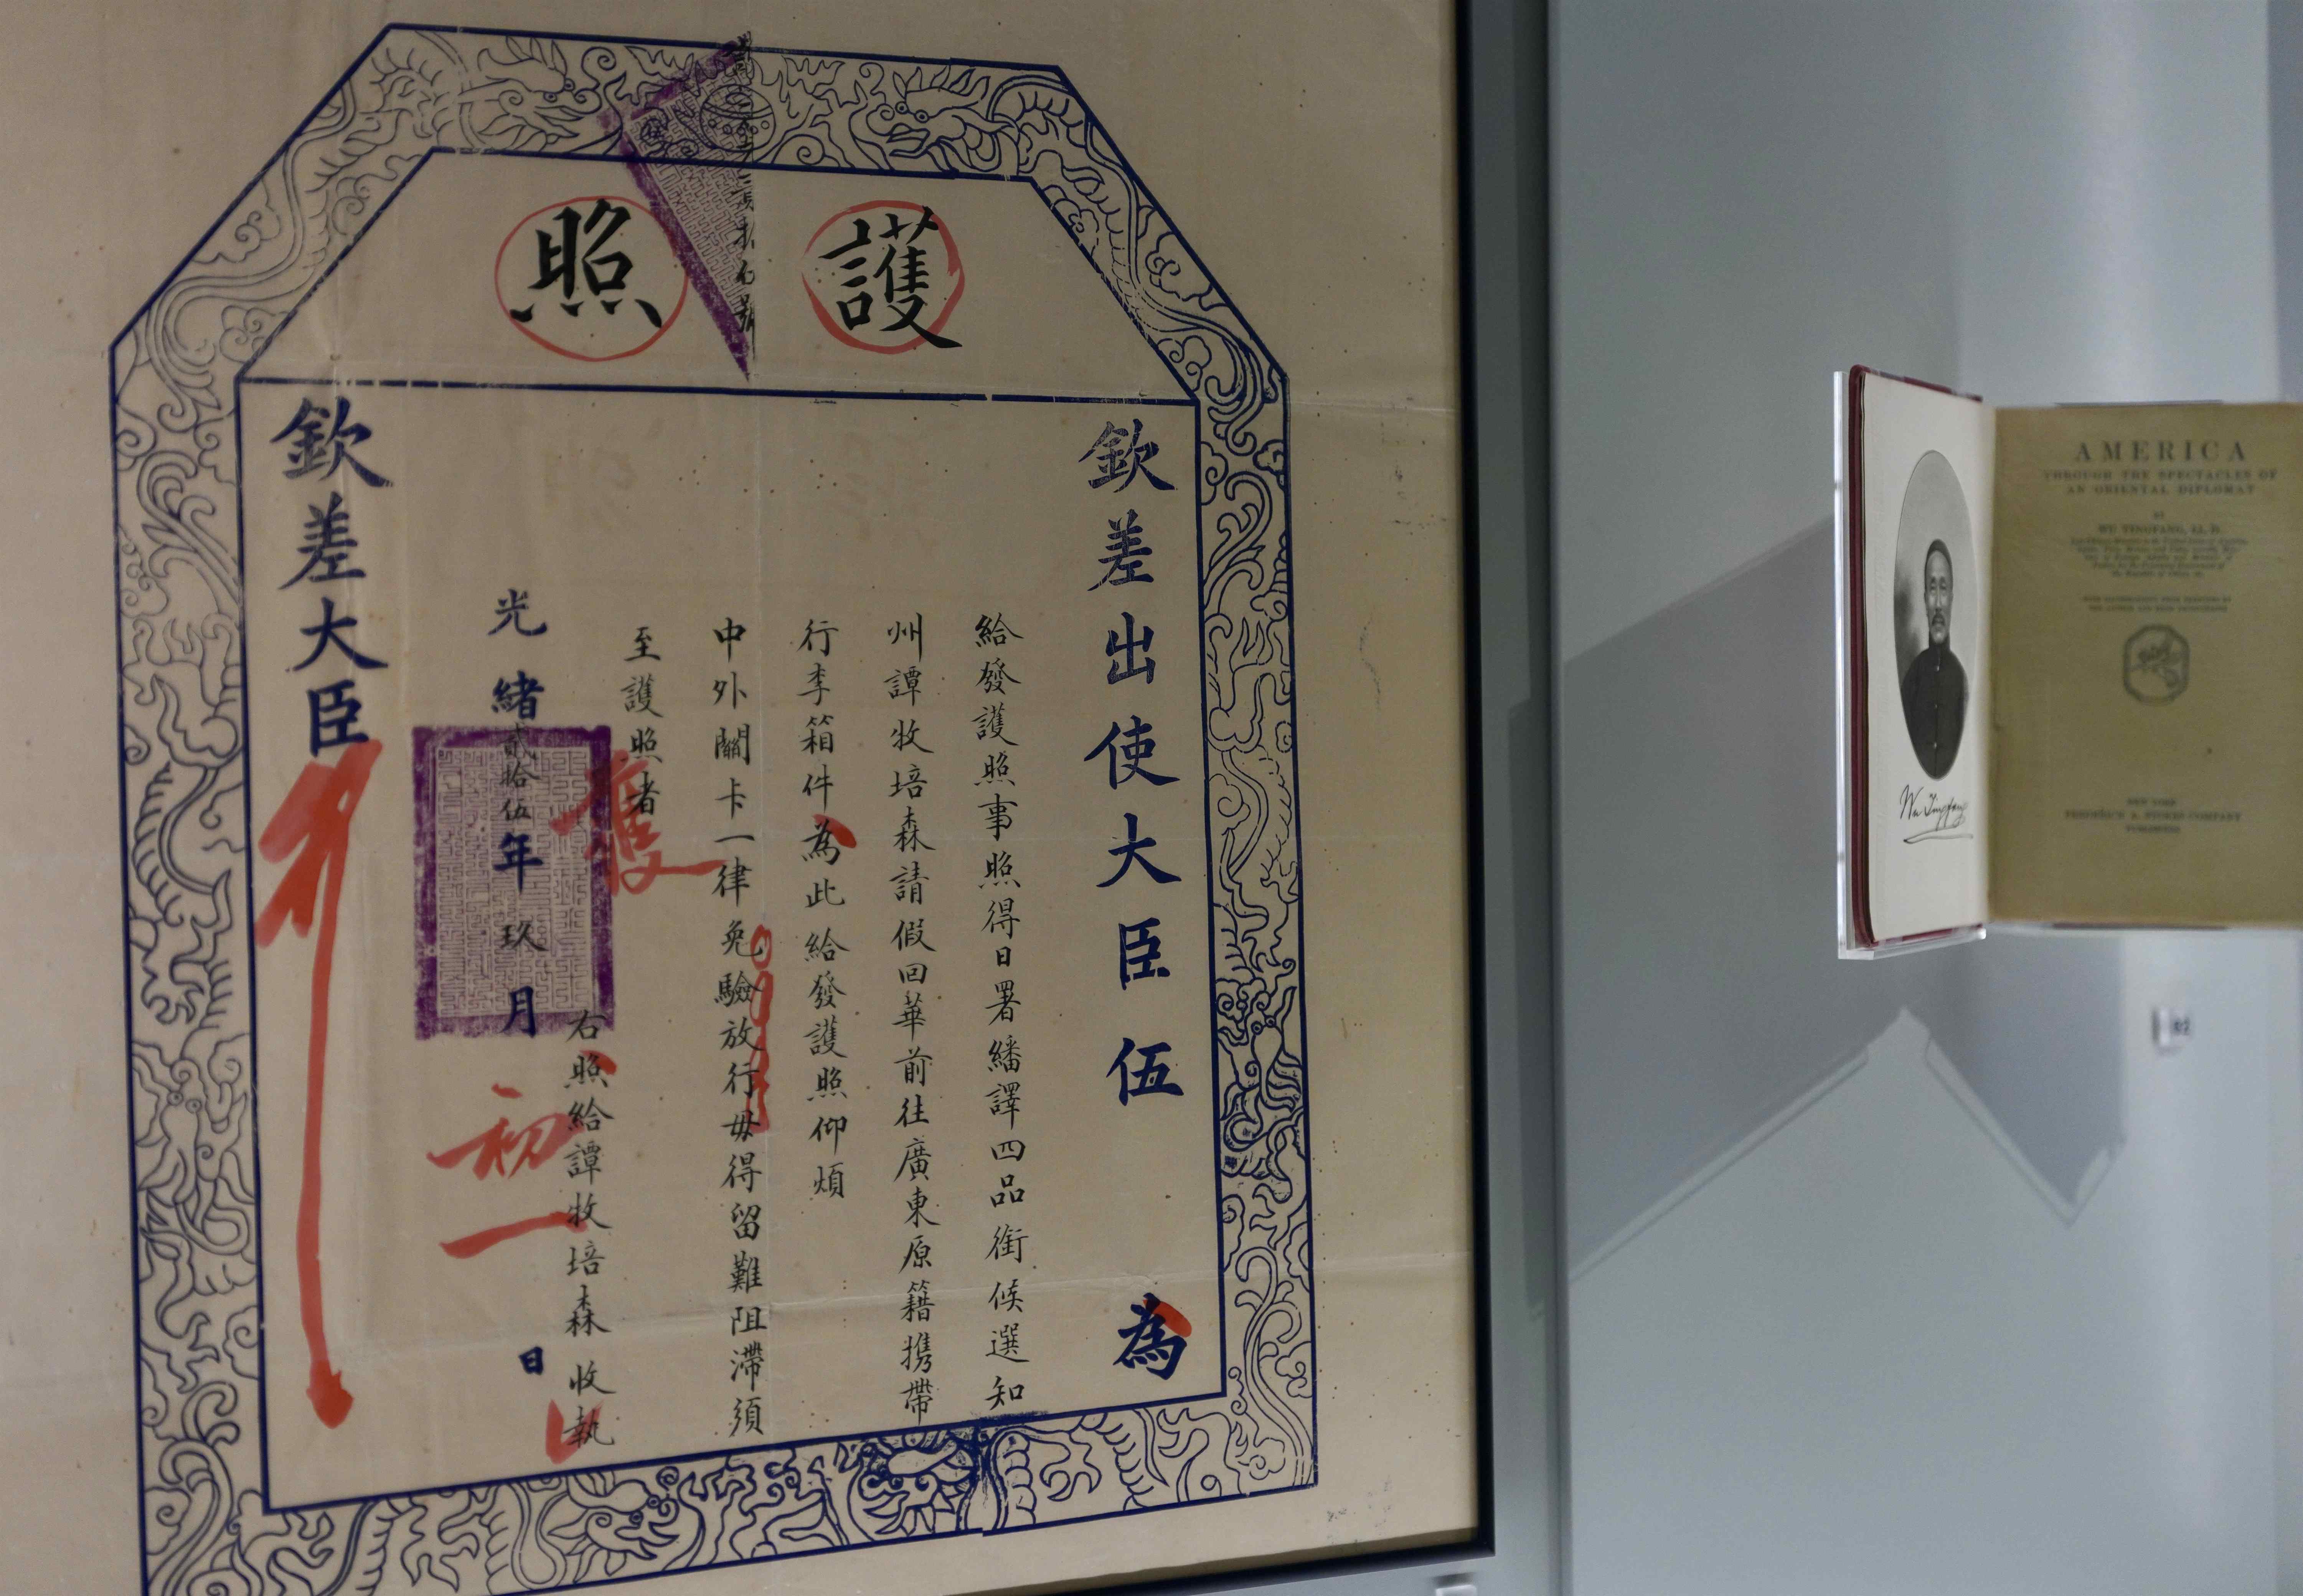 護照
欽差出使大臣伍 為
給發護照事照得日署繙譯四品銜候選知
州譚牧培森請假回華前往廣東原籍携帶
行李箱件為此給發護照仰煩
中外關卡一律免驗放行毋得留難阻滯須
至護照者
右照給譚牧培森收執
光緒貳拾伍年玖月初一日
欽差大臣
AMERICA
THROUGH THE SPECTACLES OF
AN ORIENTAL DIPLOMAT
BY
WU TINGFANG, LL.D.
NEW YORK
FREDERICK A. STOKES COMPANY
PUBLISHERS
Wu Tingfang